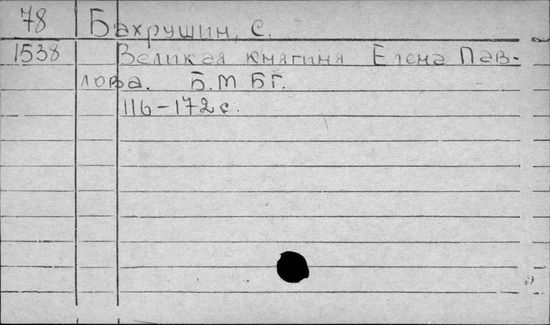 78 Бахрушин, С.
1538 Великая княгиня Елена Пав-
лова. Б.М БГ.
116-172 с.